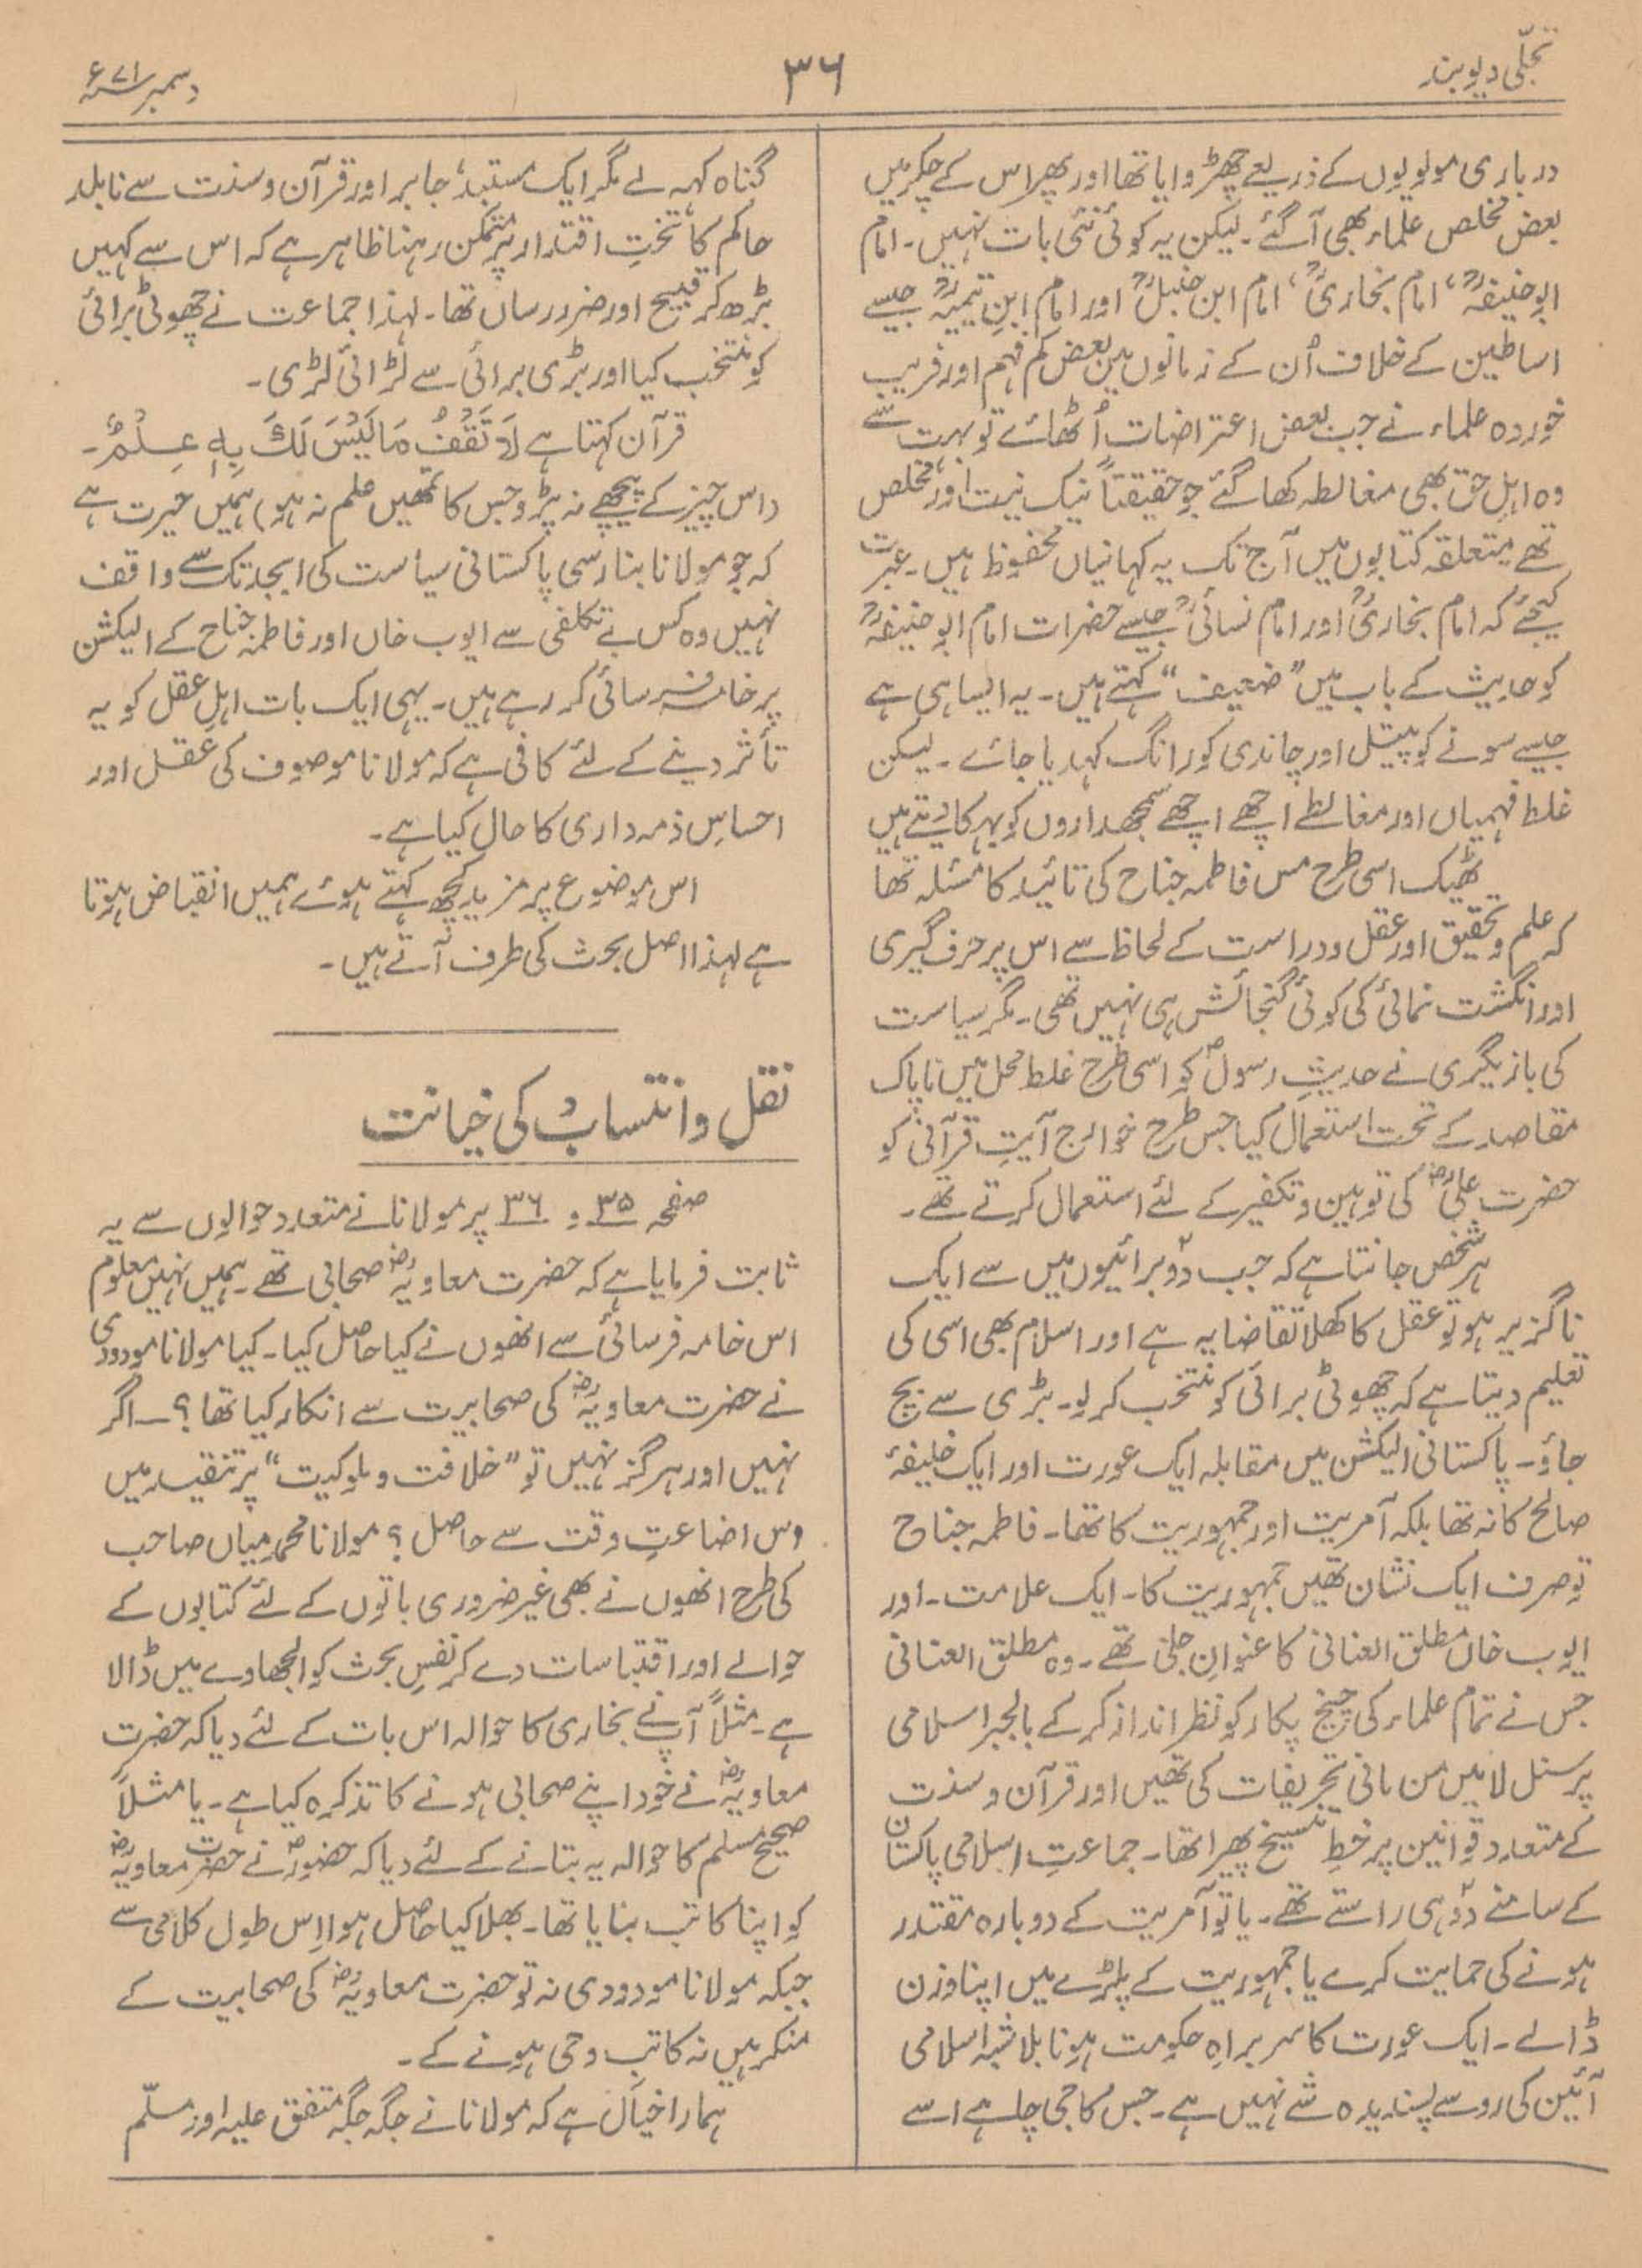 تجلّی دیوبند
۳۶
دسمبر ۷۱ء
درباری مولویوں کے ذریعے چھڑوایا تھا اور پھر اس کے چکر میں
بعض مخلص علماء بھی آگئے۔ لیکن یہ کوئی نئی بات نہیں۔ امام
ابوحنیفہؒ، امام بخاریؒ، امام ابن حنبلؒ اور امام ابنِ تیمیہؒ جیسے
اساطین کے خلاف اُن کے زمانوں میں بعض کم فہم اور فریب
خوردہ علماء نے جب بعض اعتراضات اُٹھائے تو بہت سے
وہ اہلِ حق بھی مغالطہ کھا گئے جو حقیقتاً نیک نیت اور مخلص
تھے متعلقہ کتابوں میں آج تک یہ کہانیاں محفوظ ہیں۔ عبرت
کیجئے کہ امام بخاریؒ اور امام نسائیؒ جیسے حضرات امام ابو حنیفہؒ
کو حدیث کے باب میں ”ضعیف“ کہتے ہیں۔ یہ ایسا ہی ہے
جیسے سونے کو پیتل اور چاندی کو رانگ کہدیا جائے۔ لیکن
غلط فہمیاں اور مغالطے اچھے اچھے سمجھداروں کو بہکا دیتے ہیں
ٹھیک اسی طرح مس فاطمہ جناح کی تائید کا مسئلہ تھا
کہ علم و تحقیق اور عقل و دراست کے لحاظ سے اس پر حرف گیری
اور انگشت نمائی کی کوئی گنجائش ہی نہیں تھی۔ مگر سیاست
کی بازیگری نے حدیثِ رسولؐ کو اسی طرح غلط محل میں ناپاک
مقاصد کے تحت استعمال کیا جس طرح خوارج آیتِ قرآنی کو
حضرت علیؓ کی توہین و تکفیر کے لئے استعمال کرتے تھے۔
ہر شخص جانتا ہے کہ جب دو برائیوں میں سے ایک
ناگزیر ہو تو عقل کا کھلا تقاضا یہ ہے اور اسلام بھی اسی کی
تعلیم دیتا ہے کہ چھوٹی برائی کو منتخب کر لو۔ بڑی سے بچ
جاؤ۔ پاکستانی الیکشن میں مقابلہ ایک عورت اور ایک خلیفۂ
صالح کا نہ تھا بلکہ آمریت اور جمہوریت کا تھا۔ فاطمہ جناح
تو صرف ایک نشان تھیں جمہوریت کا۔ ایک علامت۔ اور
ایوب خاں مطلق العنانی کا عنوانِ جلی تھے۔ وہ مطلق العنانی
جس نے تمام علماء کی چیخ پکار کو نظر انداز کر کے بالجبر اسلامی
پرسنل لا میں من مانی تحریفات کی تھیں اور قرآن و سنت
کے متعدد قوانین پر خطِ تنسیخ پھیرا تھا۔ جماعتِ اسلامی پاکستان
کے سامنے دو ہی راستے تھے۔ یا تو آمریت کے دوبارہ مقتدر
ہونے کی حمایت کرے یا جمہوریت کے پلڑے میں اپنا وزن
ڈالے۔ ایک عورت کا سربراہِ حکومت ہونا بلاشبہ اسلامی
آئین کی رو سے پسندیدہ شے نہیں ہے۔ جس کا جی چاہے اسے
گناہ کہہ لے مگر ایک مستبد، جابر اور قرآن و سنت سے نابلد
حاکم کا تختِ اقتدار پر متمکن رہنا ظاہر ہے کہ اس سے کہیں
بڑھ کر قبیح اور ضرر رساں تھا۔ لہذا جماعت نے چھوٹی برائی
کو منتخب کیا اور بڑی برائی سے لڑائی لڑی۔
قرآن کہتا ہے لَا تَقْفُ مَا لَيْسَ لَكَ بِهٖ عِلْمٌ۔
(اس چیز کے پیچھے نہ پڑو جس کا تمھیں علم نہ ہو) ہمیں حیرت ہے
کہ جو مولانا بنارسی پاکستانی سیاست کی ابجد تک سے واقف
نہیں وہ کس بے تکلفی سے ایوب خاں اور فاطمہ جناح کے الیکشن
پر خامہ فرسائی کر رہے ہیں۔ یہی ایک بات اہلِ عقل کو یہ
تأثر دینے کے لئے کافی ہے کہ مولانا موصوف کی عقل اور
احساسِ ذمہ داری کا حال کیا ہے۔
اس موضوع پر مزید کچھ کہتے ہوئے ہمیں انقباض ہوتا
ہے لہذا اصل بحث کی طرف آتے ہیں۔
نقل و انتساب کی خیانت
صفحہ ۳۵ و ۳۶ پر مولانا نے متعدد حوالوں سے یہ
ثابت فرمایا ہے کہ حضرت معاویہؓ صحابی تھے۔ ہمیں نہیں معلوم
اس خامہ فرسائی سے انھوں نے کیا حاصل کیا۔ کیا مولانا مودودی
نے حضرت معاویہؓ کی صحابیت سے انکار کیا تھا؟ — اگر
نہیں اور ہرگز نہیں تو ”خلافت و ملوکیت“ پر تنقید میں
اس اضاعتِ وقت سے حاصل؟ مولانا محمد میاں صاحب
کی طرح انھوں نے بھی غیر ضروری باتوں کے لئے کتابوں کے
حوالے اور اقتباسات دے کر نفسِ بحث کو الجھاوے میں ڈالا
ہے۔ مثلاً آپ نے بخاری کا حوالہ اس بات کے لئے دیا کہ حضرت
معاویہؓ نے خود اپنے صحابی ہونے کا تذکرہ کیا ہے۔ یا مثلاً
صحیح مسلم کا حوالہ یہ بتانے کے لئے دیا کہ حضورؐ نے حضرت معاویہؓ
کو اپنا کاتب بنایا تھا۔ بھلا کیا حاصل ہوا اِس طول کلامی سے
جبکہ مولانا مودودی نہ تو حضرت معاویہؓ کی صحابیت کے
منکر ہیں نہ کاتبِ وحی ہونے کے۔
ہمارا خیال ہے کہ مولانا نے جگہ جگہ متفق علیہ اور مسلّم